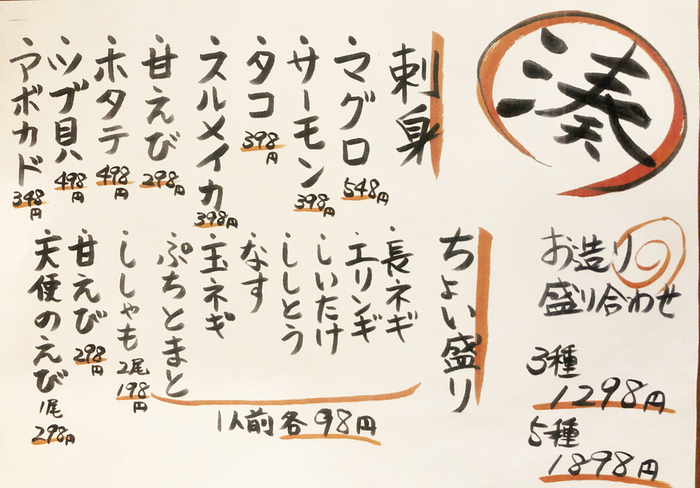 湊
お造り
盛り合わせ
3種
1298円
5種
1898円
刺身
・マグロ 548円
・サーモン 398円
・タコ 398円
・スルメイカ 398円
・甘えび 298円
・ホタテ 498円
・ツブ貝 498円
・アボカド 348円
ちょい盛り
・長ネギ
・エリンギ
・しいたけ
・ししとう
・なす
・玉ネギ
・ぷちとまと
1人前各98円
・ししゃも 2尾 198円
・甘えび 298円
・天使のえび 1尾 298円